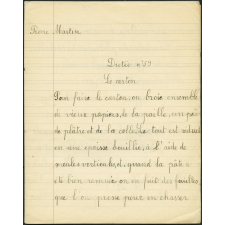 Pierre Martin
Dictée n°59
Le carton
Pour faire le carton, on broie ensemble
de vieux papiers, de la paille, un peu
de plâtre et de la colle. Le tout est réduit
en une épaisse bouillie, à l'aide de
meules verticales et, quand la pâte a
été bien remuée on en fait des feuilles
que l'on presse pour en chasser